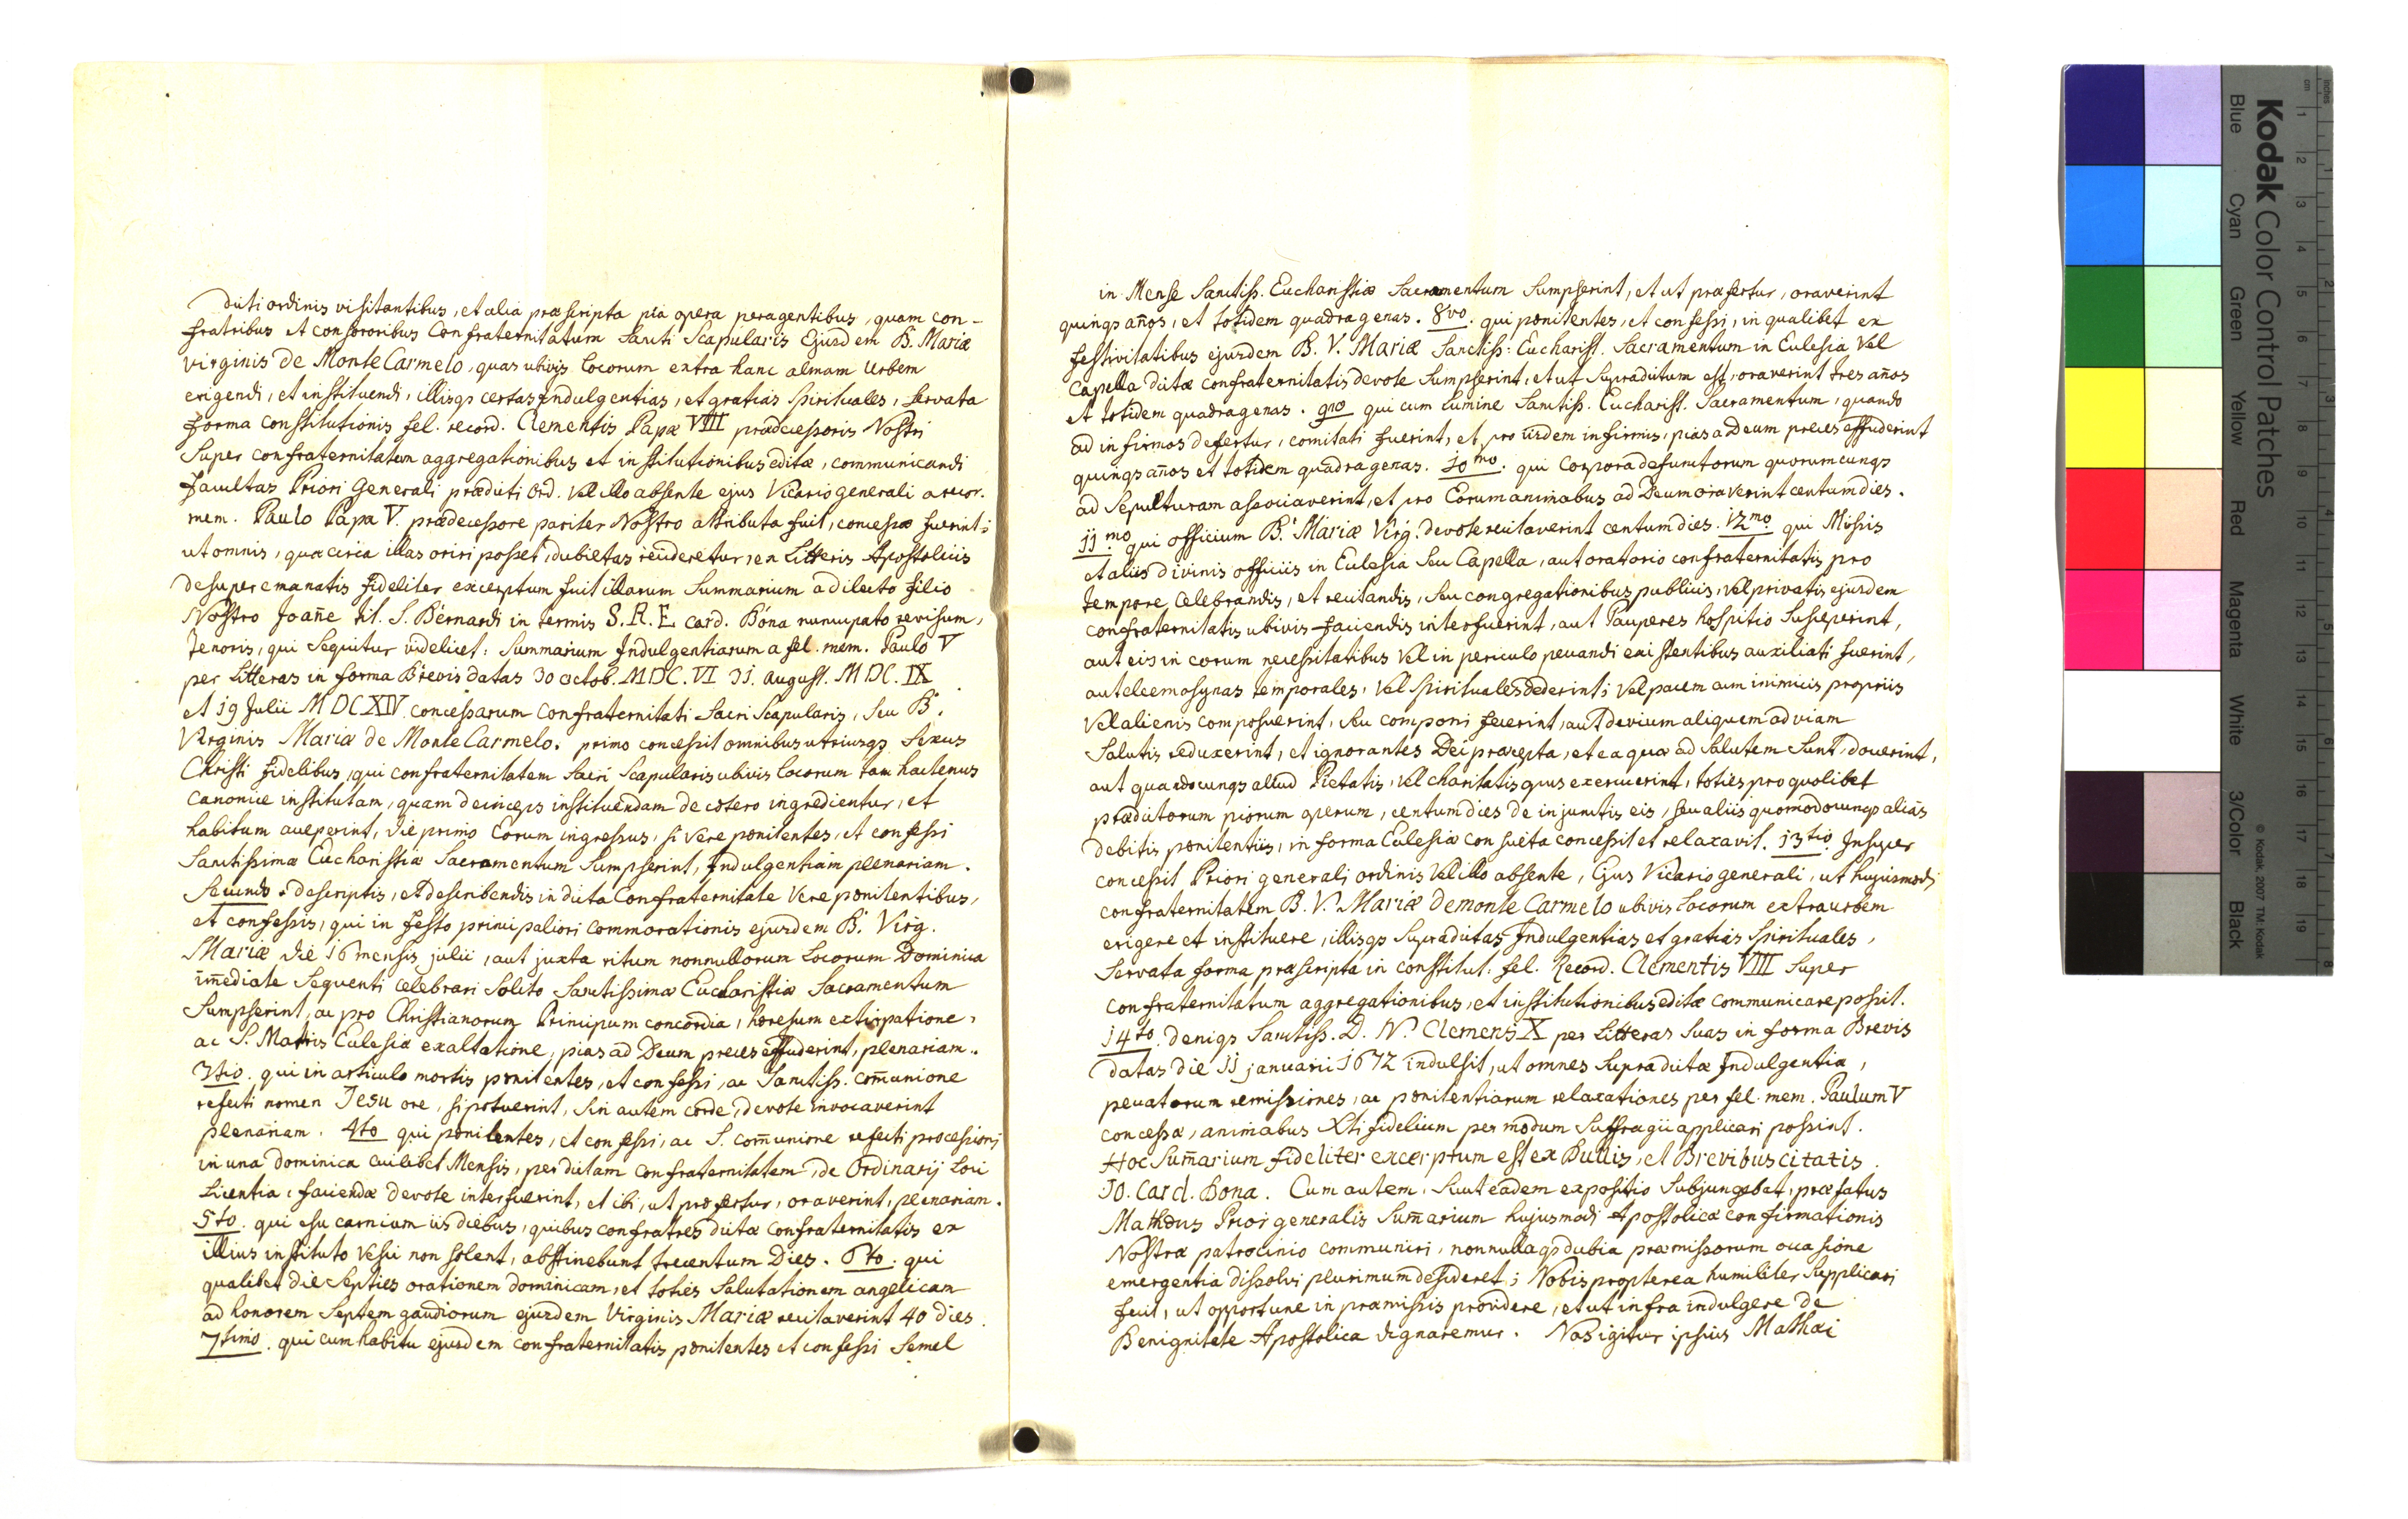 dicti ordinis visitantibus, et alia præscripta pia opera peragentibus, quam con-
fratribus et consororibus Confraternitatum Sacri Scapularis Ejusdem B. Mariæ
virginis de Monte Carmelo, quas ubivis locorum extra hanc almam Urbem
erigendi, et instituendi, illisqs certas Indulgentias, et gratias Spirituales, Servata
forma constitutionis fel. record. Clementis Papæ VIII prædecessoris Nostri
Super confraternitatum aggregationibus et institutionibus editæ, communicandi
facultas Priori Generali prædicti Ord. Vel illo absente ejus Vicario generali a recor.
mem. Paulo Papa V. prædecessore pariter Nostro attributa fuit, concessæ fuerint;
ut omnis, quæ circa illas oriri posset, dubietas recideretur, ex Litteris Apostolicis
desuper emanatis fideliter excerptum fuit illarum Summarium a dilecto filio
Nostro Joañe tit. S. Bernardi in termis S. R. E. Card. Bona nuncupato revisum,
Tenoris, qui Sequitur videlicet: Summarium Indulgentiarum a fel. mem. Paulo V
per Litteras in forma Brevis datas 30 octob. MDC.VI 31. August. MDC.IX
et 19 Julii MDCXIV concessarum Confraternitati Sacri Scapularis, Seu B.
Virginis Mariæ de Monte Carmelo. primo concessit omnibus utriusqs Sexus
Christi fidelibus, qui confraternitatem Sacri Scapularis ubivis locorum tam hactenus
canonice institutam, quam deinceps instituendam de cætero ingredientur, et
habitum acceperint, die primo Eorum ingressus, si vere pœnitentes, et confessi
Sanctissimæ Eucharistiæ Sacramentum Sumpserint, Indulgentiam plenariam.
Secundo. descriptis, et describendis in dicta Confraternitate Vere pœnitentibus,
et confessis, qui in festo principaliori Commorationis ejusdem B. Virg.
Mariæ die 16 mensis julii, aut juxta ritum nonnullorum Locorum Dominica
im̄ediate Sequenti celebrari Solito Sanctissimæ Eucharistiæ Sacramentum
Sumpserint, ac pro Christianorum Principum concordia, hæresum extirpatione,
ac S. Matris Eclesiæ exaltatione, pias ad Deum preces effuderint, plenariam.
3tio. qui in articulo mortis pœnitentes, et confessi, ac Sanctiss. com̄unione
refecti nomen Jesu ore, si potuerint, sin autem corde, devote invocaverint
plenariam. 4to qui pœnitentes, et confessi, ac S. com̄unione refecti processioni
in una dominica cuilibet Mensis, per dictam confraternitatem, de Ordinarij Loci
Licentia, faciendæ devote interfuerint, et ibi, ut præfertur, oraverint, plenariam.
5to. qui esu carnium iis diebus, quibus confratres dictæ Confraternitatis ex
illius instituto Vesci non solent, abstinebunt trecentum Dies. 6to. qui
qualibet die Septies orationem dominicam, et toties Salutationem angelicam
ad honorem Septem gaudiorum ejusdem Virginis Mariæ recitaverint 40 dies.
7timo. qui cum habitu ejusdem confraternitatis pœnitentes et confessi Semel
in Mense Sanctiss. Eucharistiæ Sacramentum Sumpserint, et ut præfertur, oraverint
quinqs años, et totidem quadragenas. 8vo. qui pœnitentes, et confessi, in qualibet ex
festivitatibus ejusdem B. V. Mariæ Sanctiss: Eucharist. Sacramentum in Eclesia Vel
Capella dictæ confraternitatis devote Sumpserint, et ut Supradictum est, oraverint tres años
et totidem quadragenas. 9no qui cum Lumine Sanctiss. Eucharist. Sacramentum, quando
ad infirmos defertur, comitati fuerint, et pro iisdem infirmis, pias a Deum preces effuderint
quinqs años et totidem quadragenas. 10mo. qui Corpora defunctorum quorumcunqs
ad Sepulturam associaverint, et pro Eorum animabus ad Deum oraverint centum dies.
11mo qui officium B. Mariæ Virg. devote recitaverint centum dies. 12mo qui Missis
et aliis divinis officiis in Eclesia Seu Capella, aut oratorio confraternitatis pro
tempore celebrandis, et recitandis, Seu congregationibus publicis, Vel privatis ejusdem
confraternitatis ubivis faciendis interfuerint, aut Pauperes hospitio Susceperint,
aut eis in eorum necessitatibus Vel in periculo peccandi existentibus auxiliati fuerint,
aut eleemosynas temporales, Vel Spirituales dederint; Vel pacem cum inimicis propriis
Vel alienis composuerint, Seu componi fecerint, aut devium aliquem ad viam
Salutis reduxerint, et ignorantes Dei præcepta, et ea quæ ad Salutem Sunt, docuerint,
aut quandocunqs aliud Pietatis, Vel charitatis opus exercuerint, toties pro quolibet
prædictorum piorum operum, centum dies de injunctis eis, seu aliis quomodocunqs alias
debitis pœnitentiis, in forma Eclesiæ consueta concessit et relaxavit. 13tio. Insuper
concessit Priori generali ordinis Vel illo absente, Ejus Vicario generali, ut hujusmodi
confraternitatem B. V. Mariæ de monte Carmelo ubivis Locorum extra urbem
erigere et instituere, illisqs Supradictas Indulgentias et gratias Spirituales,
Servata forma præscripta in constitut. fel. Record. Clementis VIII Super
confraternitatum aggregationibus, et institutionibus editæ communicare possit.
14to. deniqs Sanctiss. D. N. Clemens X per Litteras Suas in forma Brevis
datas die 11 januarii 1672 indulsit, ut omnes Supradictæ Indulgentiæ,
peccatorum remissiones, ac pœnitentiarum relaxationes per fel. mem. Paulum V
concessæ, animabus Xti fidelium per modum Suffragii applicari possint.
Hoc Sum̄arium fideliter excerptum est ex Bullis, et Brevibus citatis.
Jo. Card. Bona. Cum autem, Sicut eadem expositio Subjungebat, præfatus
Mathæus Prior generalis Sum̄arium hujusmodi Apostolicæ confirmationis
Nostræ patrocinio communiri, nonnullaqs dubia præmissorum occasione
emergentia dissolvi plurimum desideret; Nobis propterea humiliter Supplicari
fecit, ut opportune in præmissis providere, et ut infra indulgere de
Benignitete Apostolica dignaremur. Nos igitur ipsius Mathæi
Kodak Color Control Patches
Blue Cyan Green Yellow Red Magenta White 3/Color Black
© Kodak, 2007 TM: Kodak
cm 1 2 3 4 5 6 7 8 9 10 11 12 13 14 15 16 17 18 19
inches 1 2 3 4 5 6 7 8